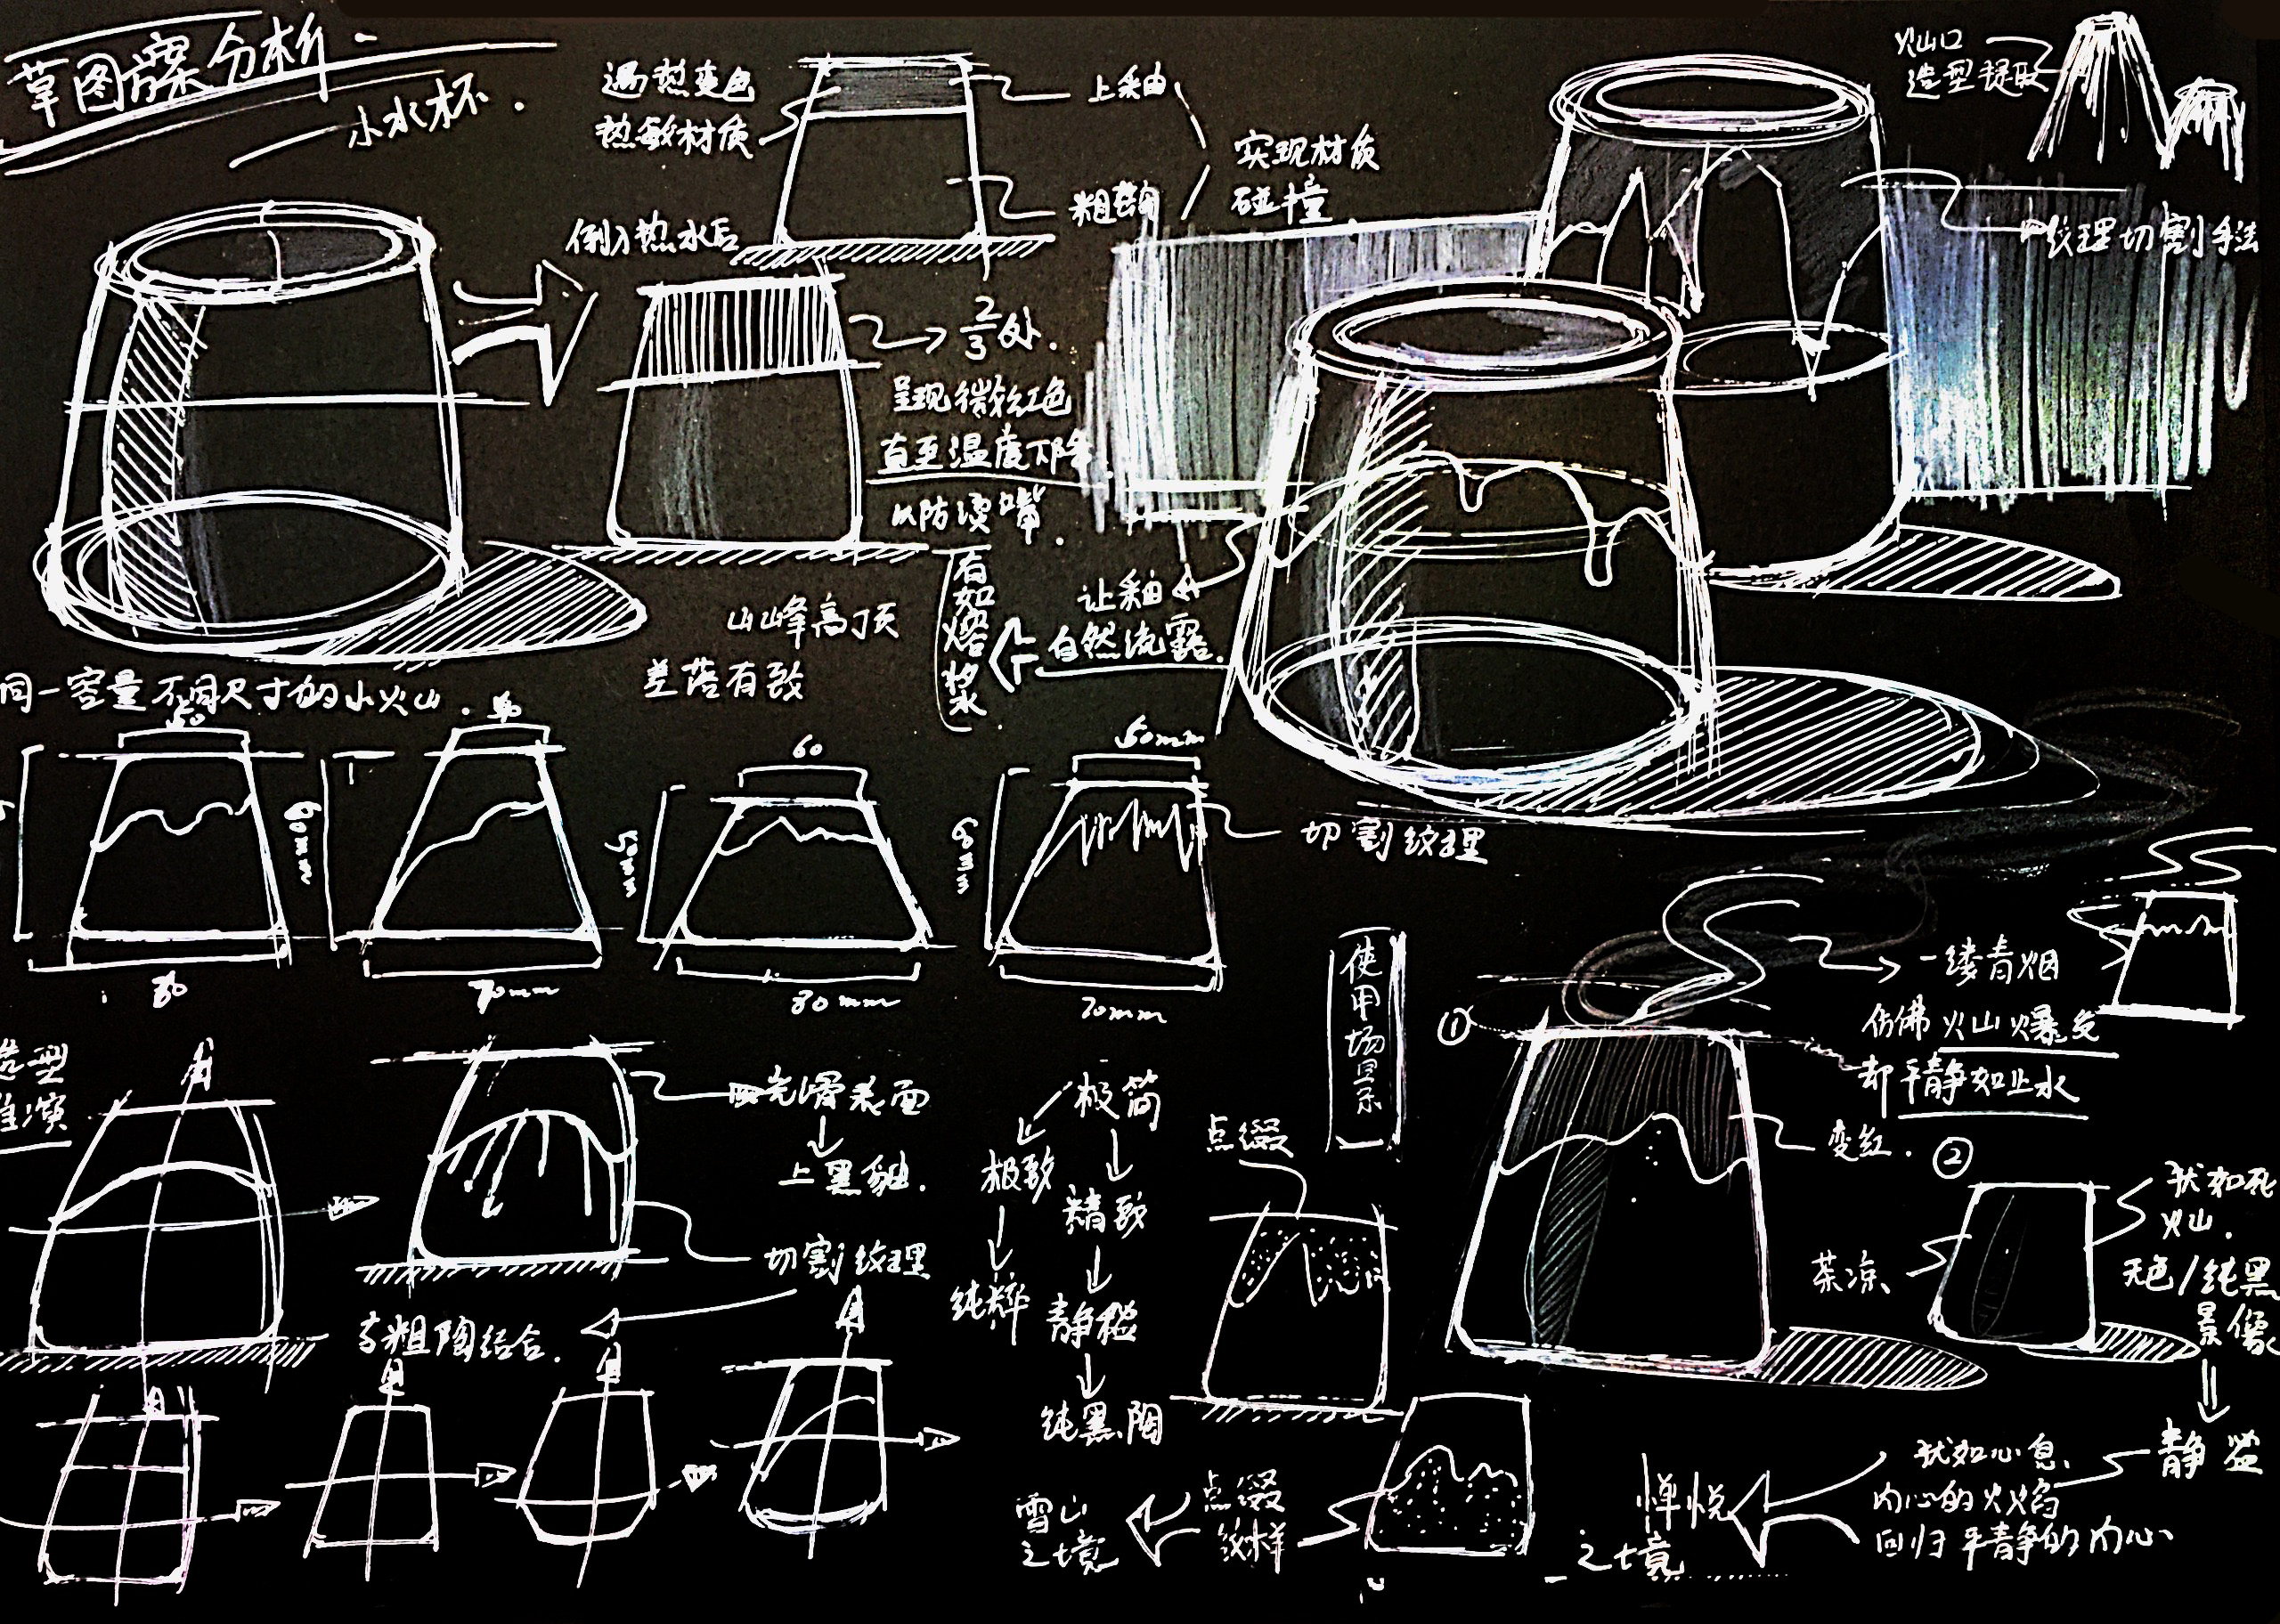 草图方案分析
小水杯.
遇热变色
热敏材质
上釉
粗陶
实现材质
碰撞
火山口
造型提取
纹理切割手法
倒入热水后
2/3处.
呈现微红色
直至温度下降
以防烫嘴.
有如熔浆
让釉
自然流露.
山峰高顶
差落有致
同一容量不同尺寸的小火山.
50
60mm
80
70mm
60
50mm
80mm
50mm
70mm
切割纹理
使用场景
造型
推演
光滑表面
上黑釉.
切割纹理
与粗陶结合.
极简
极致
纯粹
精致
静谧
纯黑陶
点缀
①
一缕青烟
仿佛火山爆发
却平静如止水
变红.
②
茶凉
犹如死
火山.
无色/纯黑
景像
静谧
犹如心息
内心的火焰
回归平静的内心
之境
点缀
纹样
雪山
之境